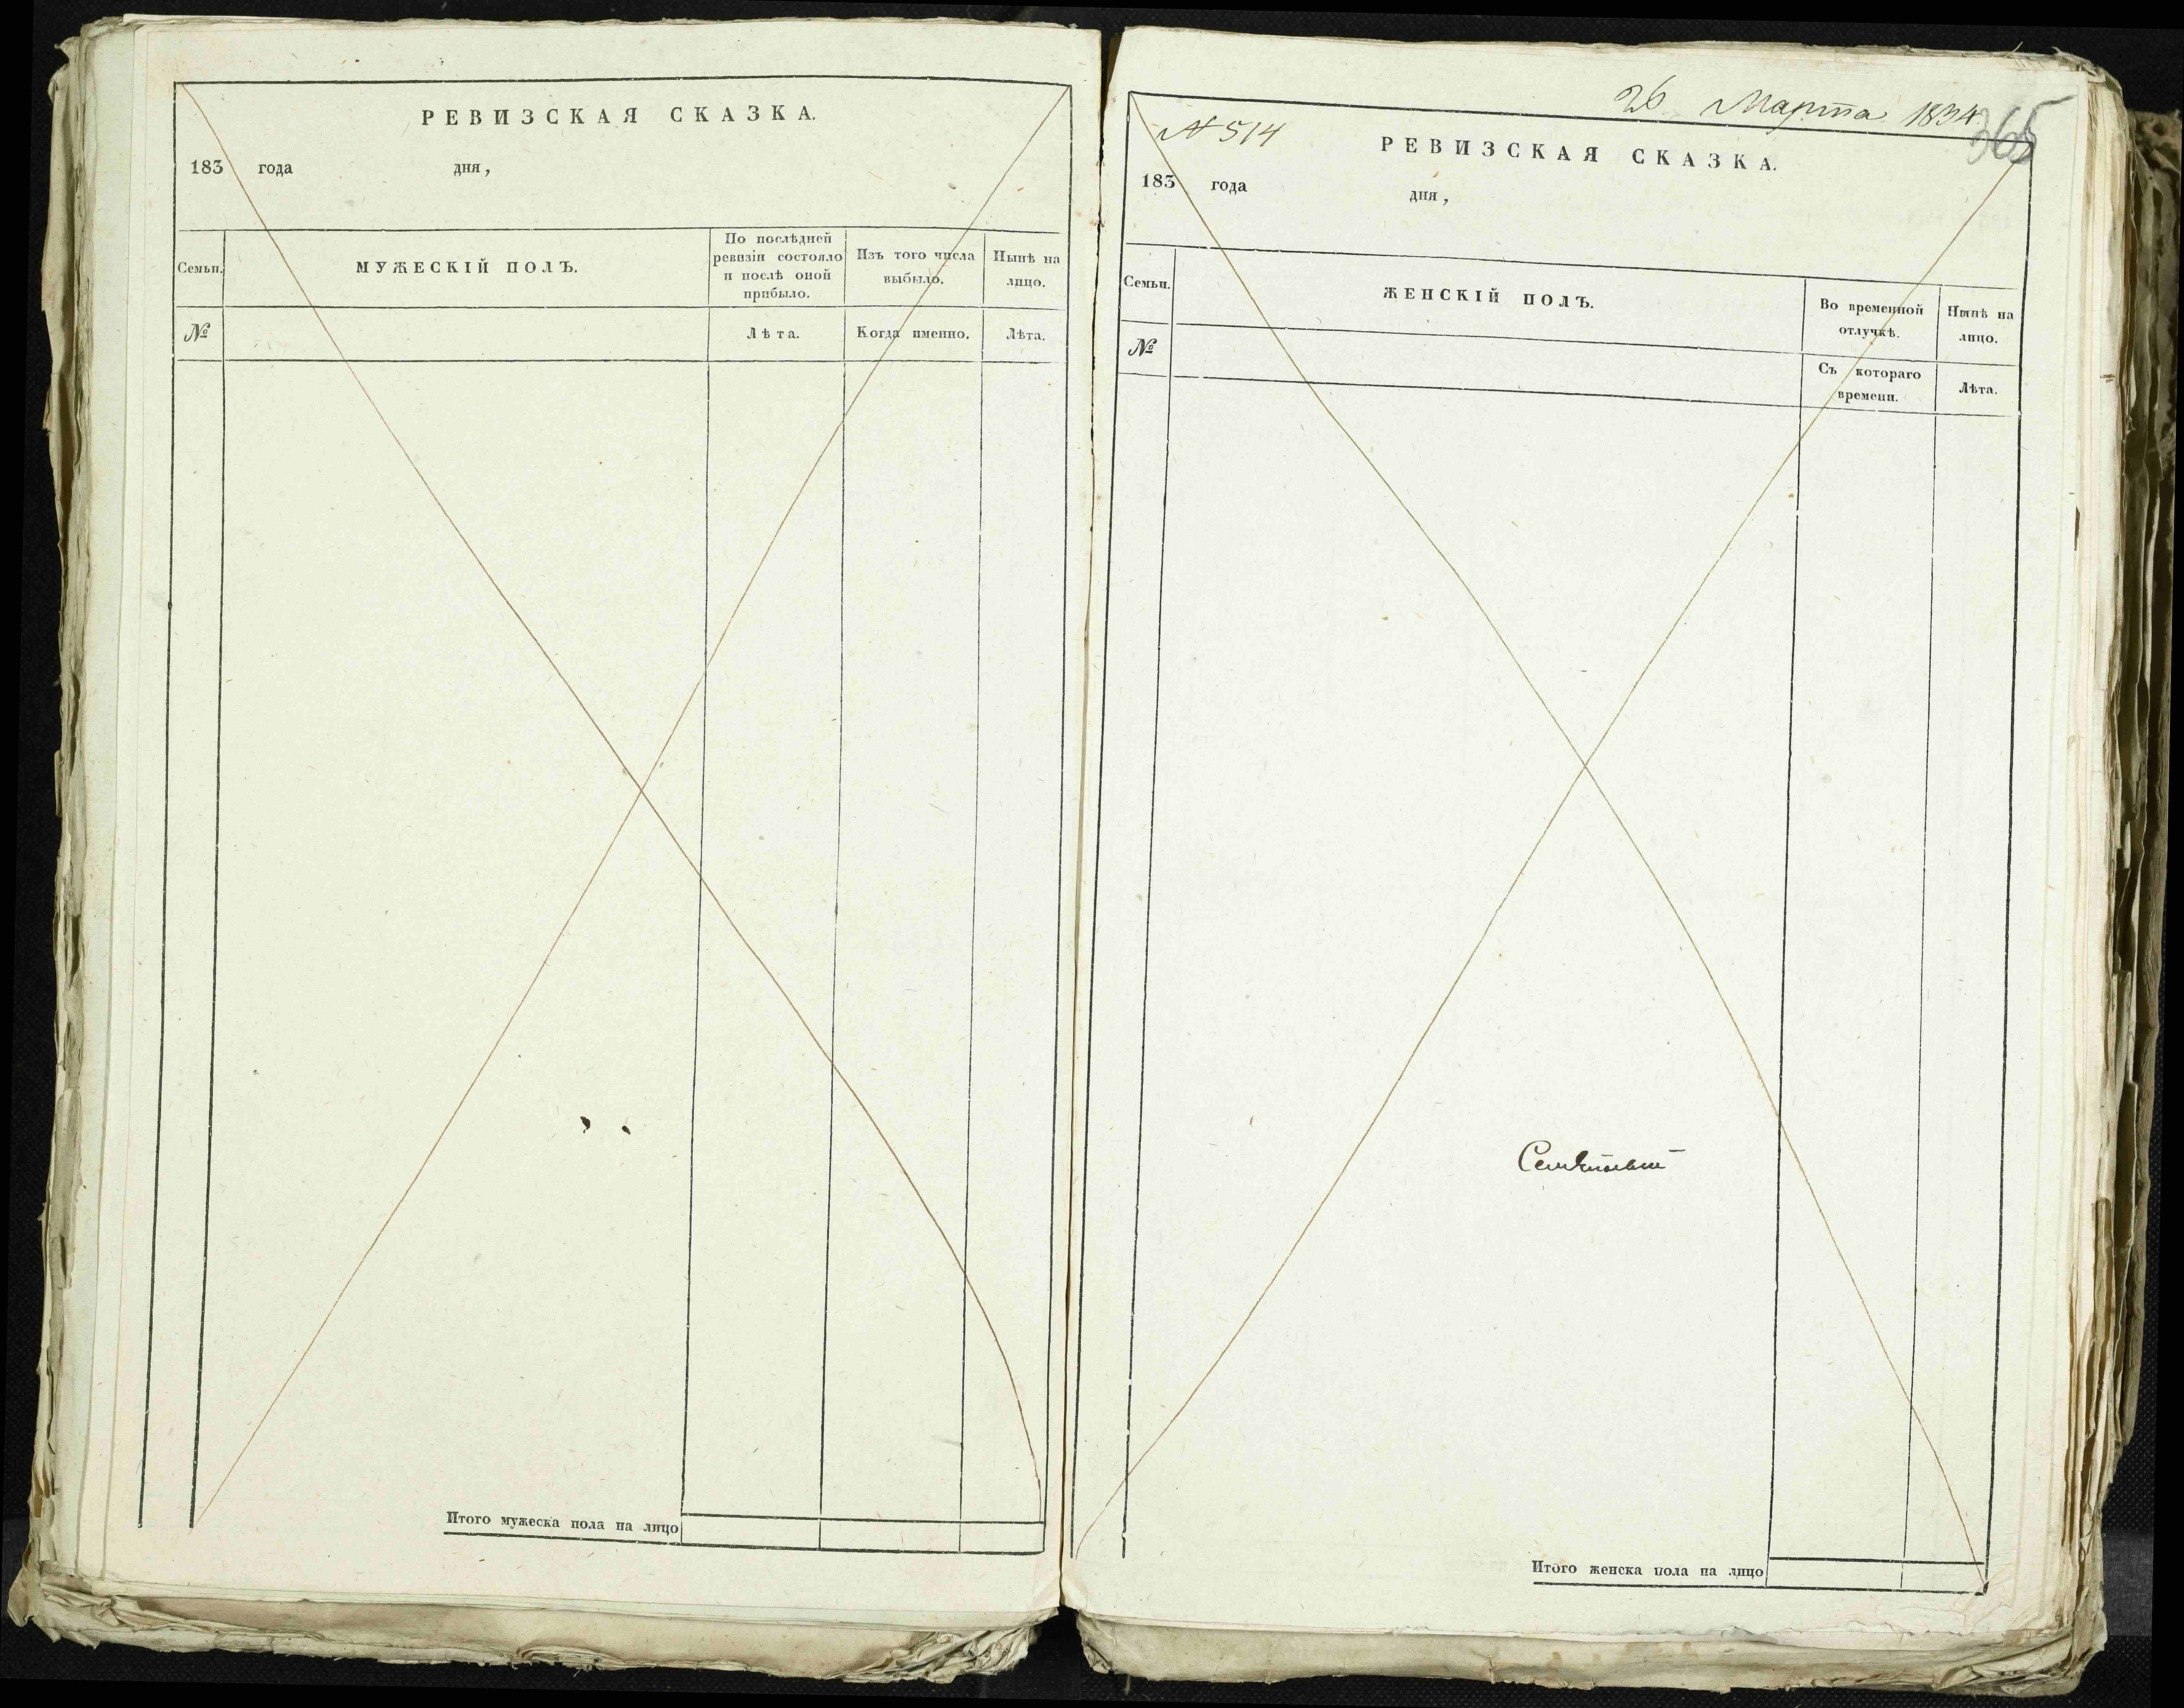 РЕВИЗСКАЯ СКАЗКА.
183 года дня,
Семьи.
МУЖЕСКІЙ ПОЛЪ.
По послѣдней
ревизіи состояло
и послѣ оной
прибыло.
Изъ того числа
выбыло.
Нынѣ на
лицо.
№
Лѣта.
Когда именно.
Лѣта.
Итого мужеска пола на лицо
26 Марта 1834.
365
№ 514
РЕВИЗСКАЯ СКАЗКА.
183 года дня,
Семьи.
ЖЕНСКІЙ ПОЛЪ.
Во временной
отлучкѣ.
Нынѣ на
лицо.
№
Съ котораго
времени.
Лѣта.
Итого женска пола на лицо